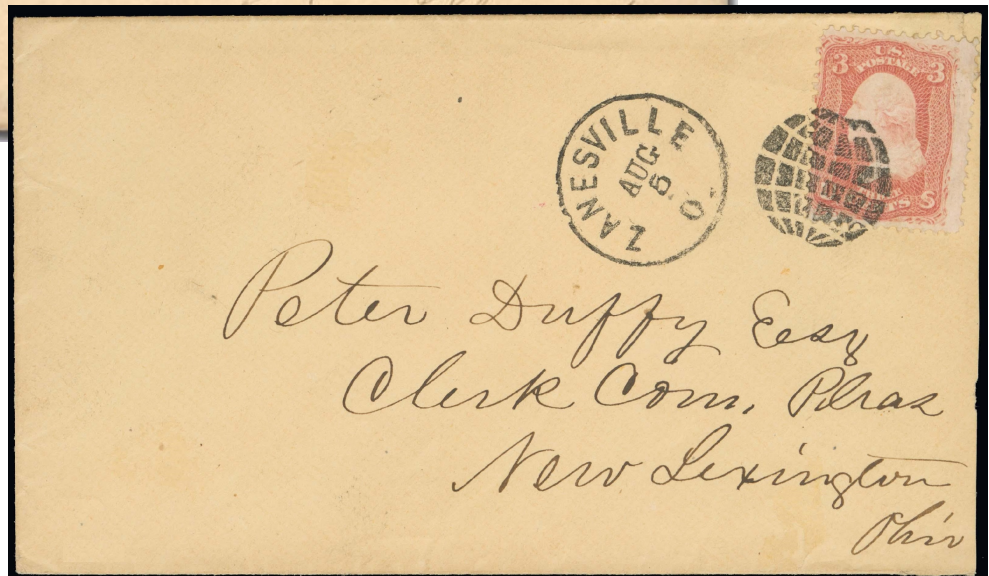 3 U.S. 3
POSTAGE
S
ZANESVILLE
AUG
5
O.
Peter Duffy Esq
Clerk Com. Pleas
New Lexington
Ohio